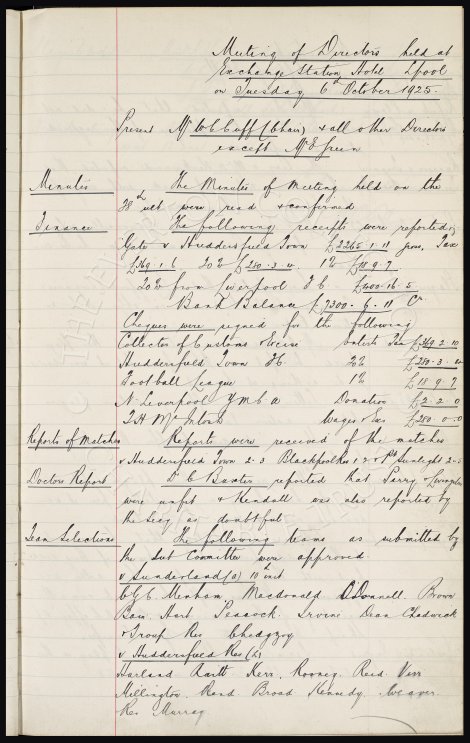 Meeting of Directors held at
Exchange Station Hotel Lpool
on Tuesday 6th October 1925.
Present Mr W C Cuff (Chair) & all other Directors
except Mr E Green
Minutes The Minutes of Meeting held on the
28th ult were read & confirmed
Finance The following receipts were reported;
Gate v Huddersfield Town £2265.1.11 gross, Tax
£369.1.6 20% £280.3.4. 1% £18.9.7
20% from Liverpool F C £400.16.5
Bank Balance £7300.6.11 Cr
Cheques were signed for the following
Collector of Customs & Excise Enterts Tax £369.2.10
Huddersfield Town F.C. 20% £280.3.4
Football League 1% £18.9.7
N. Liverpool Y M C A Donation £2.2.0
T.H. McIntosh Wages & Exs £280.0.0
Reports of Matches Reports were received of the matches
v Huddersfield Town 2-3 Blackpool Res 1-2 & Pt Sunlight 2-
Doctors Report Dr C Baxter reported that Parry & Livingstone
were unfit & Kendall was also reported by
the Secy as doubtful
Team Selections The following teams as submitted by
the Sub Committee were approved.
v Sunderland (a) 10th inst
Menham Macdonald O'Donnell. Brown
Bain. Hart Peacock. Irvine. Dean Chadwick
& Troup Res Chedgzoy
v Huddersfield Res (h)
Harland Raitt Kerr. Rooney. Reid Virr
Millington. Rand Broad Kennedy. Weaver
Res Murray